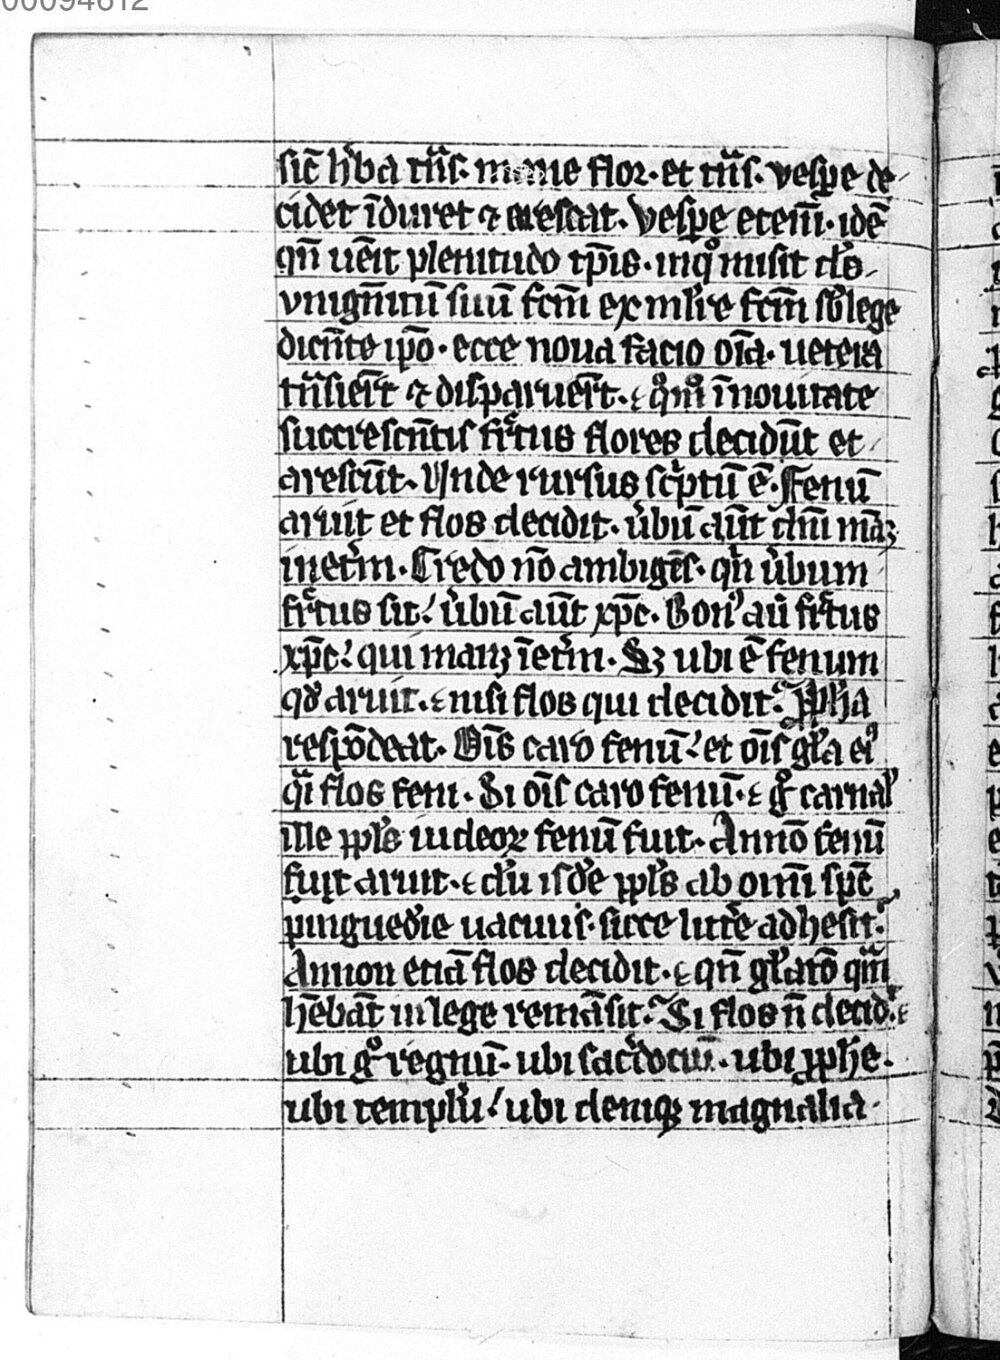 00094612
sic̄ h̓ba tn̄s. mane flor. et tn̄s. vesꝑe de
cidet īduret ⁊ arescat. Vesꝑe etenī. idē
qn̄ uēit plenitudo tp̄is. in qͦ misit d̓s
vnign̄itū suū fcm̄ ex mlīre fcm̄ sb̓ lege
dicn̄te ip̄o. ecce noua facio oīa. uetera
tn̄sier̄t ⁊ disparuer̄t.
succrescn̄tis fr̄tus flores decidūt et
arescūt. Vnde rursus sc̓ptū ē. Fenū
aruit et flos decidit. u̓bū aūt dn̄i māꝫ
in et̓m. Credo nō ambigēs. qn̄ u̓bum
fr̄tus sit! u̓bū aūt xp̄c. Bonꝰ aū fr̄tus
xp̄c! qui manꝫ ī et̓m. Sꝫ ubi ē fenum
qd̓ aruit. nisi flos qui decidit. ꝓph̓a
respōdeat. Oīs caro fenū! et oīs gl̓a eiꝰ
qͣi flos feni. Si oīs caro fenū. gͦ carnal̓
ille ppl̓s iudeoꝝ fenū fuit. Annō fenū
aruit. dū isd̓e ppl̓s ab omī spc̄
pinguedīe uacuus. sicce litt̓e adhesit.
Annon etiā flos decidit. qn̄ gl̓atō qͣm
hēbāt in lege remāsit. Si flos n̄ decid̓.
ubi gͦ regnū. ubi sac̓dociū. ubi ꝓph̓e.
ubi templū! ubi deniqꝫ magnalia.